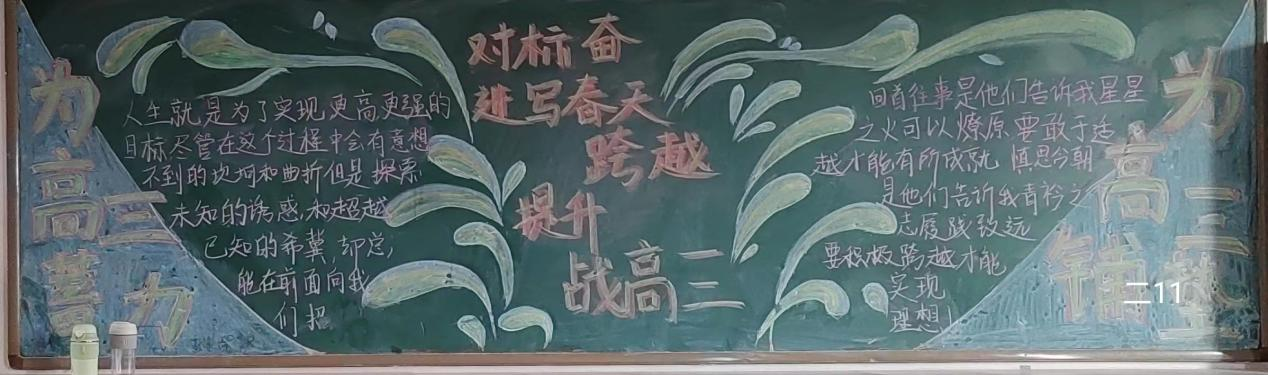 为
高三
蓄力
人生就是为了实现更高更强的
目标尽管在这个过程中会有意想
不到的坎坷和曲折但是探索
未知的诱惑,和超越
已知的希冀,却总,
能在前面向我
们招
对标奋
进写春天
跨越
提升
战高三
回首往事是他们告诉我星星
之火可以燎原要敢于逾
越才能有所成就 慎思今朝
是他们告诉我青衿之
志履践致远
要积极跨越才能
实现
理想!
为
高三
铺垫
二11